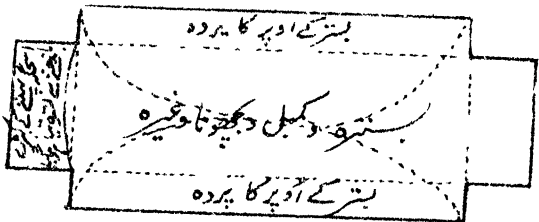 بستر کے اوپر کا پردہ
بستر و کمبل و بچھونا وغیرہ
بستر کے اُوپر کا پردہ